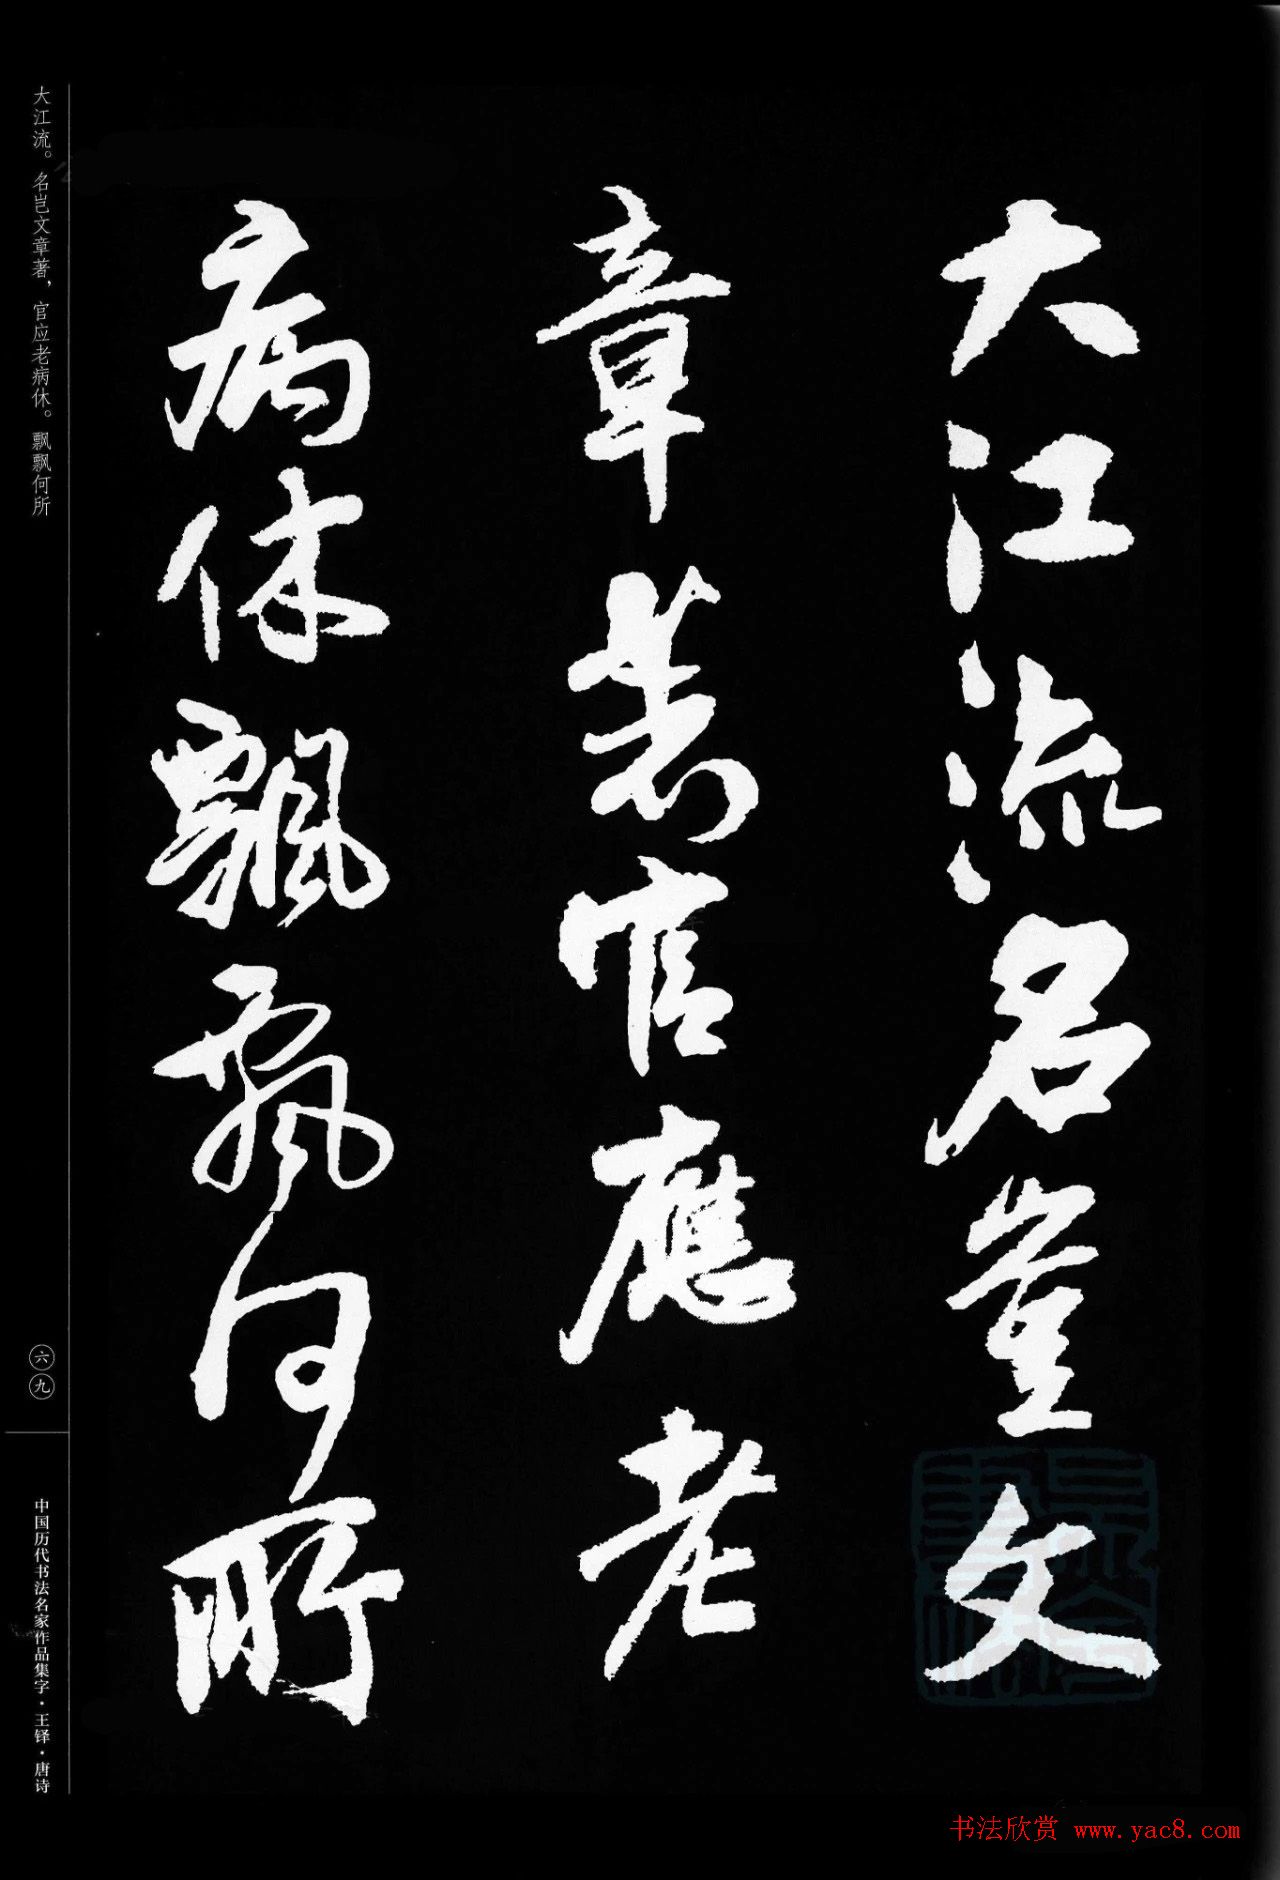 大江流名豈文
章著官應老
病休飄飄何所
大江流。名岂文章著，官应老病休。飘飘何所
六九
中国历代书法名家作品集字·王铎·唐诗
书法欣赏 www.yac8.com